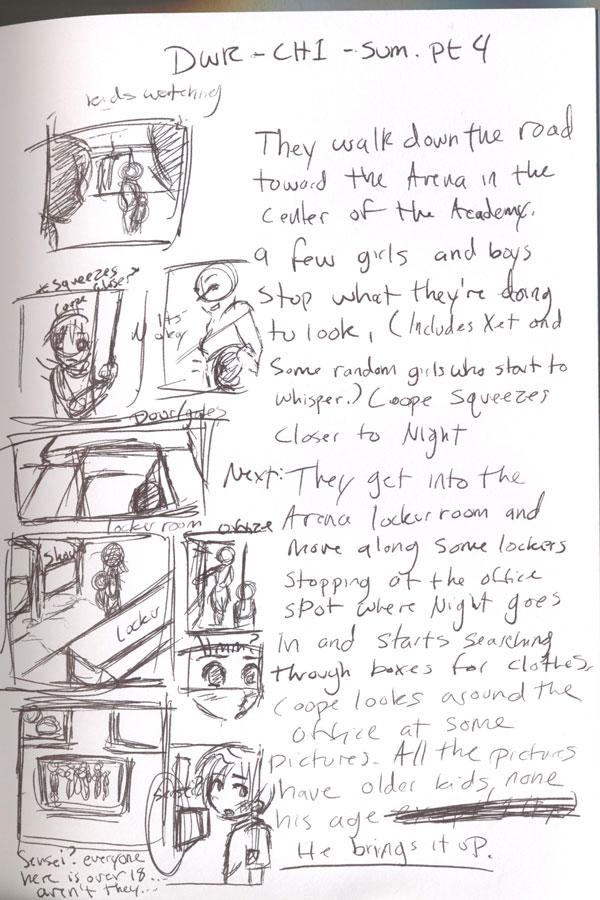 DWR - CHI - Sum. Pt 4
kids watching
They walk down the road
toward the Arena in the
center of the Academy.
a few girls and boys
stop what they're doing
to look, (Includes Xet and
Some random girls who start to
whisper.) Coope Squeezes
closer to Night
*Squeezes
closer*
Coope
Its
okay
Door/gates
Next: They get into the
Arena locker room and
Move along some lockers
stopping at the office
spot where Night goes
In and starts searching
through boxes for clothes.
Coope looks around the
office at some
pictures. All the pictures
have older kids, none
his age
He brings it up.
locker room
office
locker
Hmm?
Sensei?
Sensei? everyone
here is over 18...
aren't they...